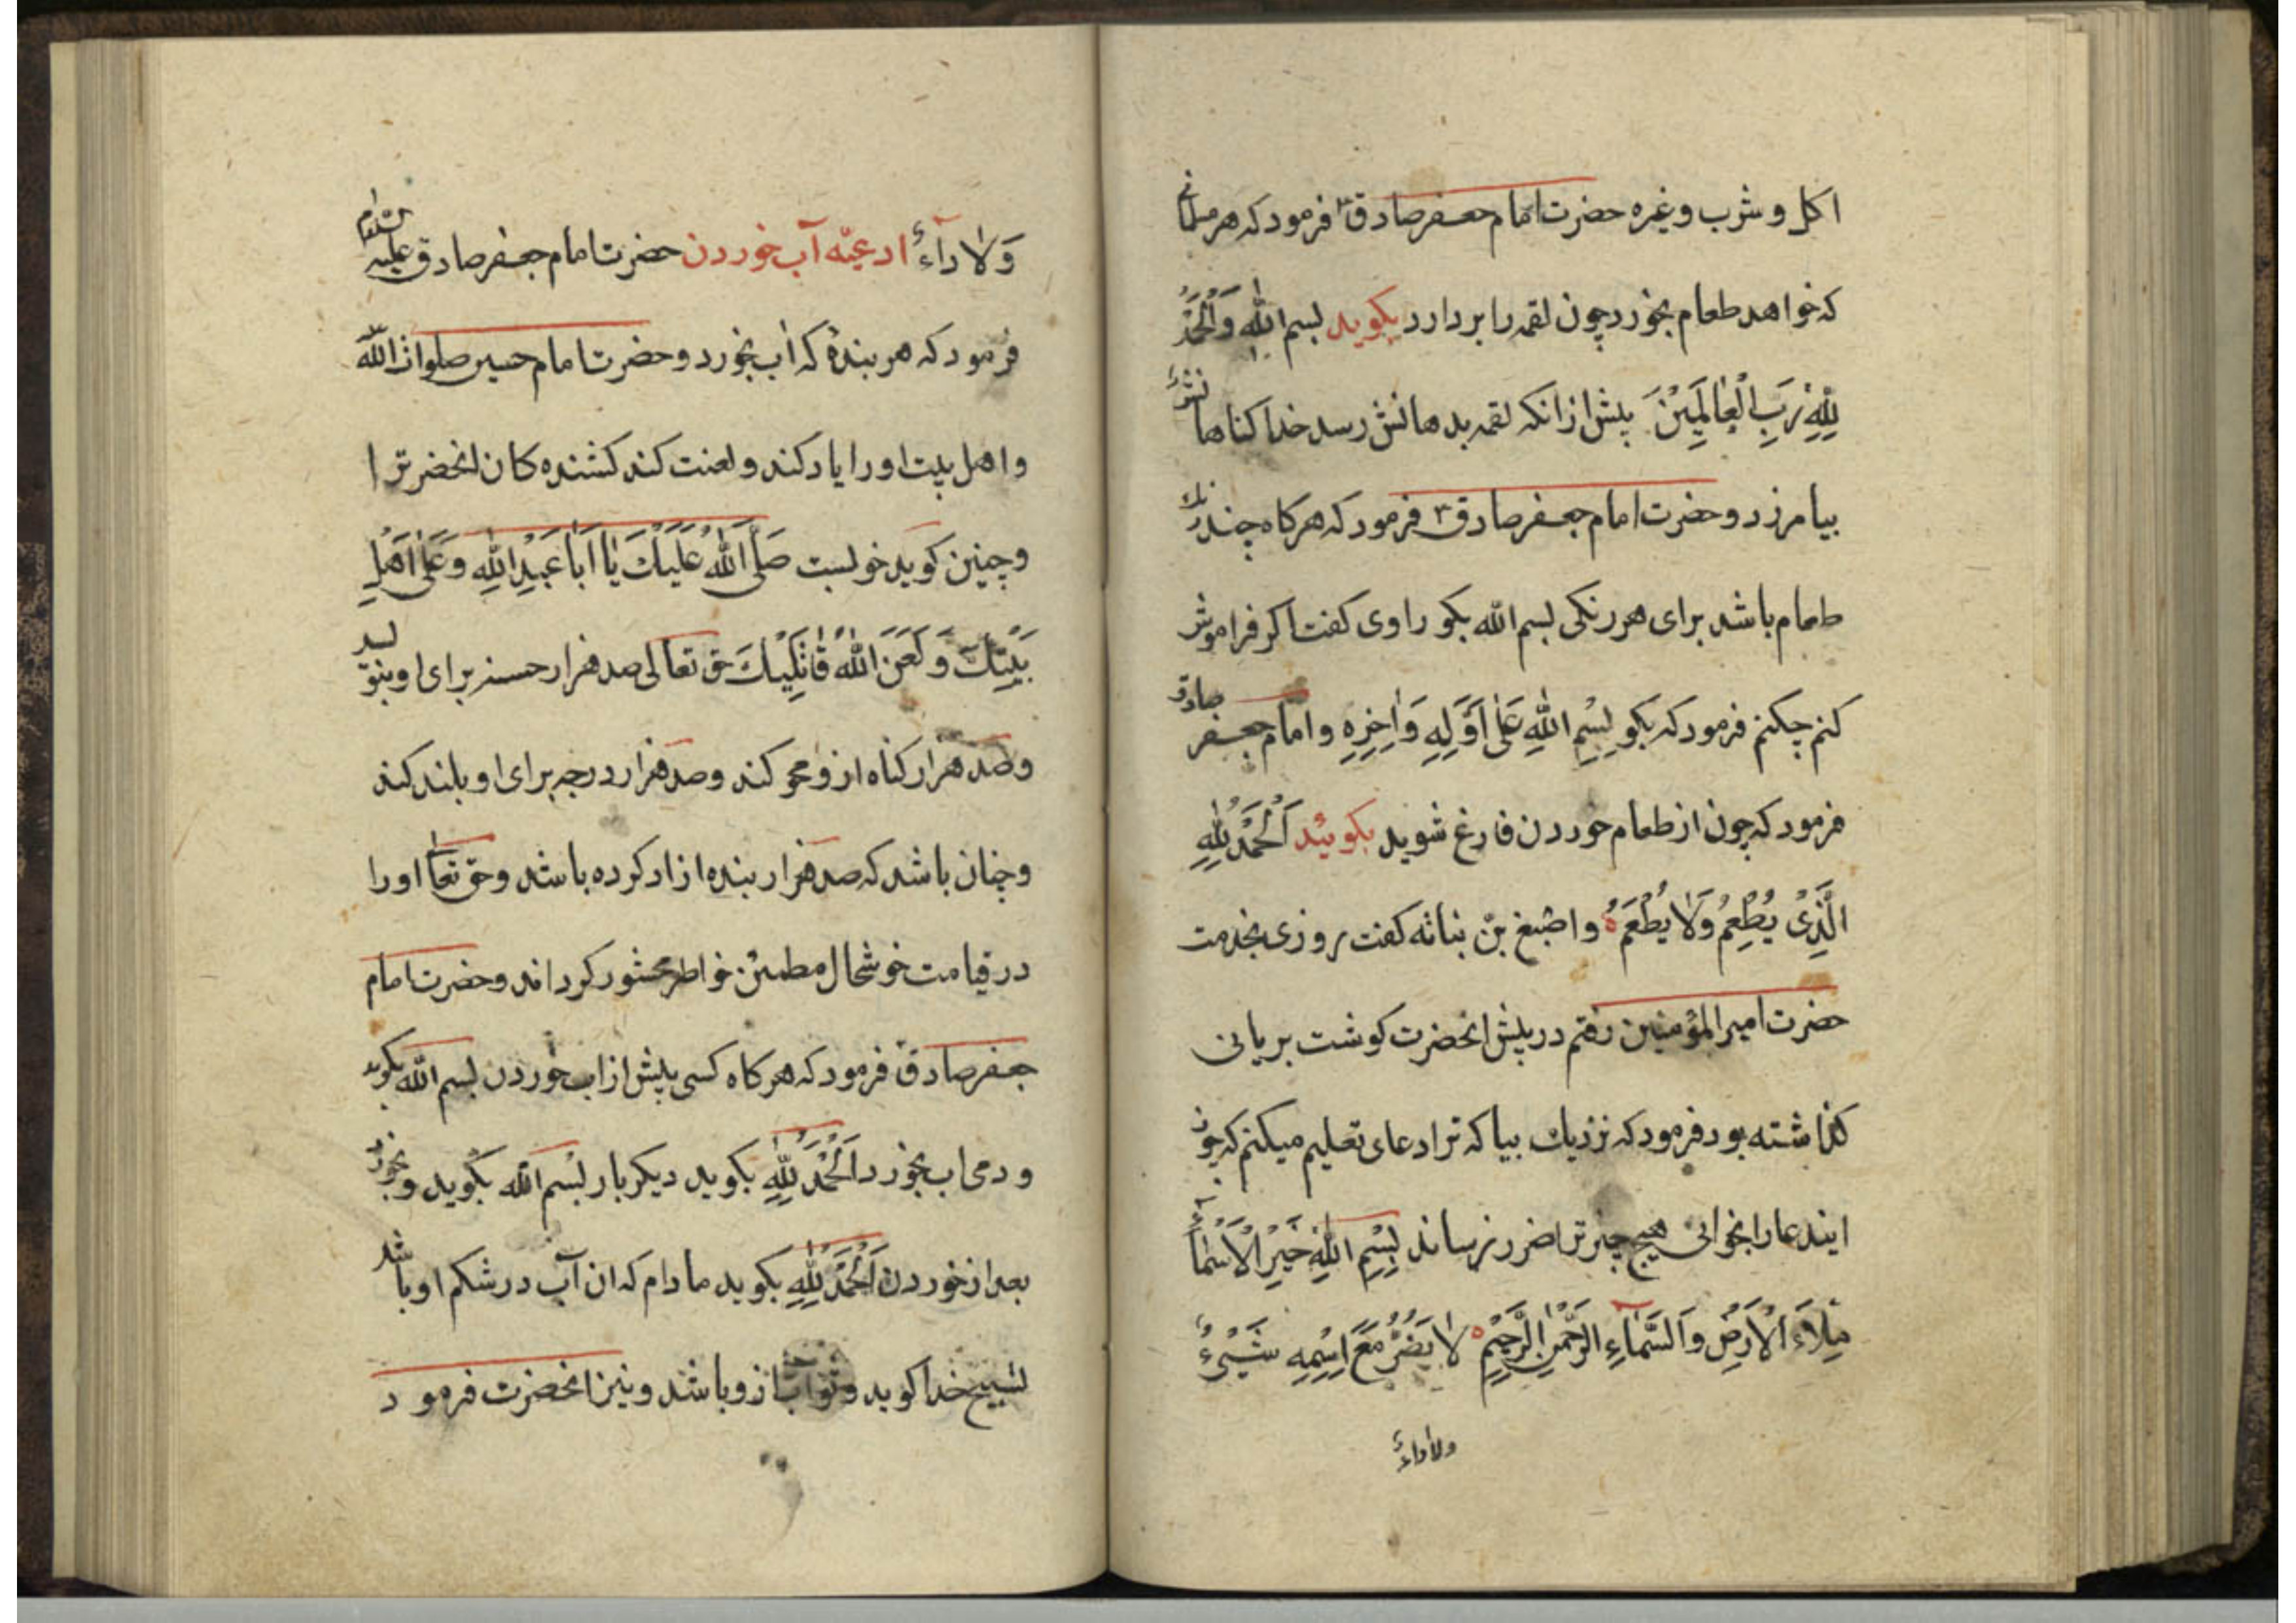 اکل و شرب و غیره حضرت امام جعفر صادق ع فرمود که هر مسلمانی
که خواهد طعام بخورد چون لقمه را بردارد بکوید بسم الله وَالْحَمْدُ
لِلّٰهِ رَبِّ الْعٰالَمِیْنَ پیش از انکه لقمه بدهانش رسد خدا کناهانش
بیامرزد و حضرت امام جعفر صادق ع فرمود که هرکاه چند رنك
طعام باشد برای هر رنکی بسم الله بکو راوی کفت اکر فراموش
کنم چکنم فرمود که بکو بِسْمِ اللّٰهِ عَلٰی اَوَّلِهِ وَاٰخِرِهِ و امام جعفر صادق
فرمود که چون از طعام خوردن فارغ شوید بکوئید اَلْحَمْدُ لِلّٰهِ
الَّذِیْ یُطْعِمُ وَلٰا یُطْعَمُ و اصبغ بن بناته کفت روزی بخدمت
حضرت امیرالمؤمنین رفتم در پیش انحضرت کوشت بریانی
کذاشته بود فرمود که نزدیك بیا که ترا دعای تعلیم میکنم که چون
ایندعا را بخوانی هیچ چیز ترا ضرر نرساند بِسْمِ اللّٰهِ خَیْرِ الْاَسْمٰآءِ
مِلْاَءَ الْاَرْضِ وَالسَّمٰاءِ الرَّحْمٰنِ الرَّحِیْمِ لٰا یَضُرُّ مَعَ اِسْمِهِ شَیْئٌ
ولاداءٌ
وَلٰا دآءٌ ادعیّه آب خوردن حضرت امام جعفر صادق علیه السلام
فرمود که هر بندۀ که آب بخورد و حضرت امام حسین صلوات الله
و اهل بیت او را یاد کند و لعنت کند کشنده کان انحضرترا
و چنین کوید خوبست صَلَّی اللّٰهُ عَلَیْكَ یٰا اَبٰا عَبْدِ اللّٰهِ وَ عَلٰی اَهْلِ
بَیْتِكَ وَ لَعَنَ اللّٰهُ قٰاتِلِیْكَ حق تعالی صد هزار حسنه برای او بنویسد
و صد هزار کناه ازو محو کند و صد هزار درجه برای او بلند کند
و چنان باشد که صد هزار بنده ازاد کرده باشد و حق تعا او را
در قیامت خوشحال مطمئن خواطر محشور کرداند و حضرت امام
جعفر صادق فرمود که هرکاه کسی پیش از اب خوردن بسم الله بکوید
و دمی اب بخورد اَلْحَمْدُ لِلّٰهِ بکوید دیکر بار بسم الله بکوید و بخورد
بعد از خوردن اَلْحَمْدُ لِلّٰهِ بکوید مادام که ان آب در شکم او باشد
تسبیح خدا کوید و ثواب ازو باشد و نیز انحضرت فرمود